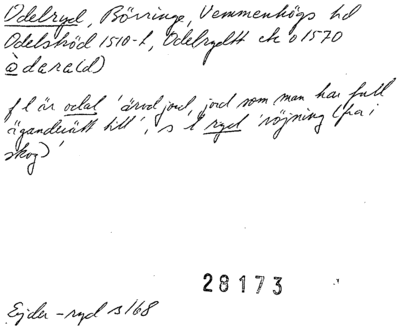 Odelryd, Börringe, Vemmenhögs hd
Odelsköd 1510-t, Odelrydtt ck o 1570
òdara(d)
f l är odal 'ärvd jord, jord som man har full
äganderätt till', s l ryd 'röjning (fra i
skog)'
28173
Ejder-ryd s 168